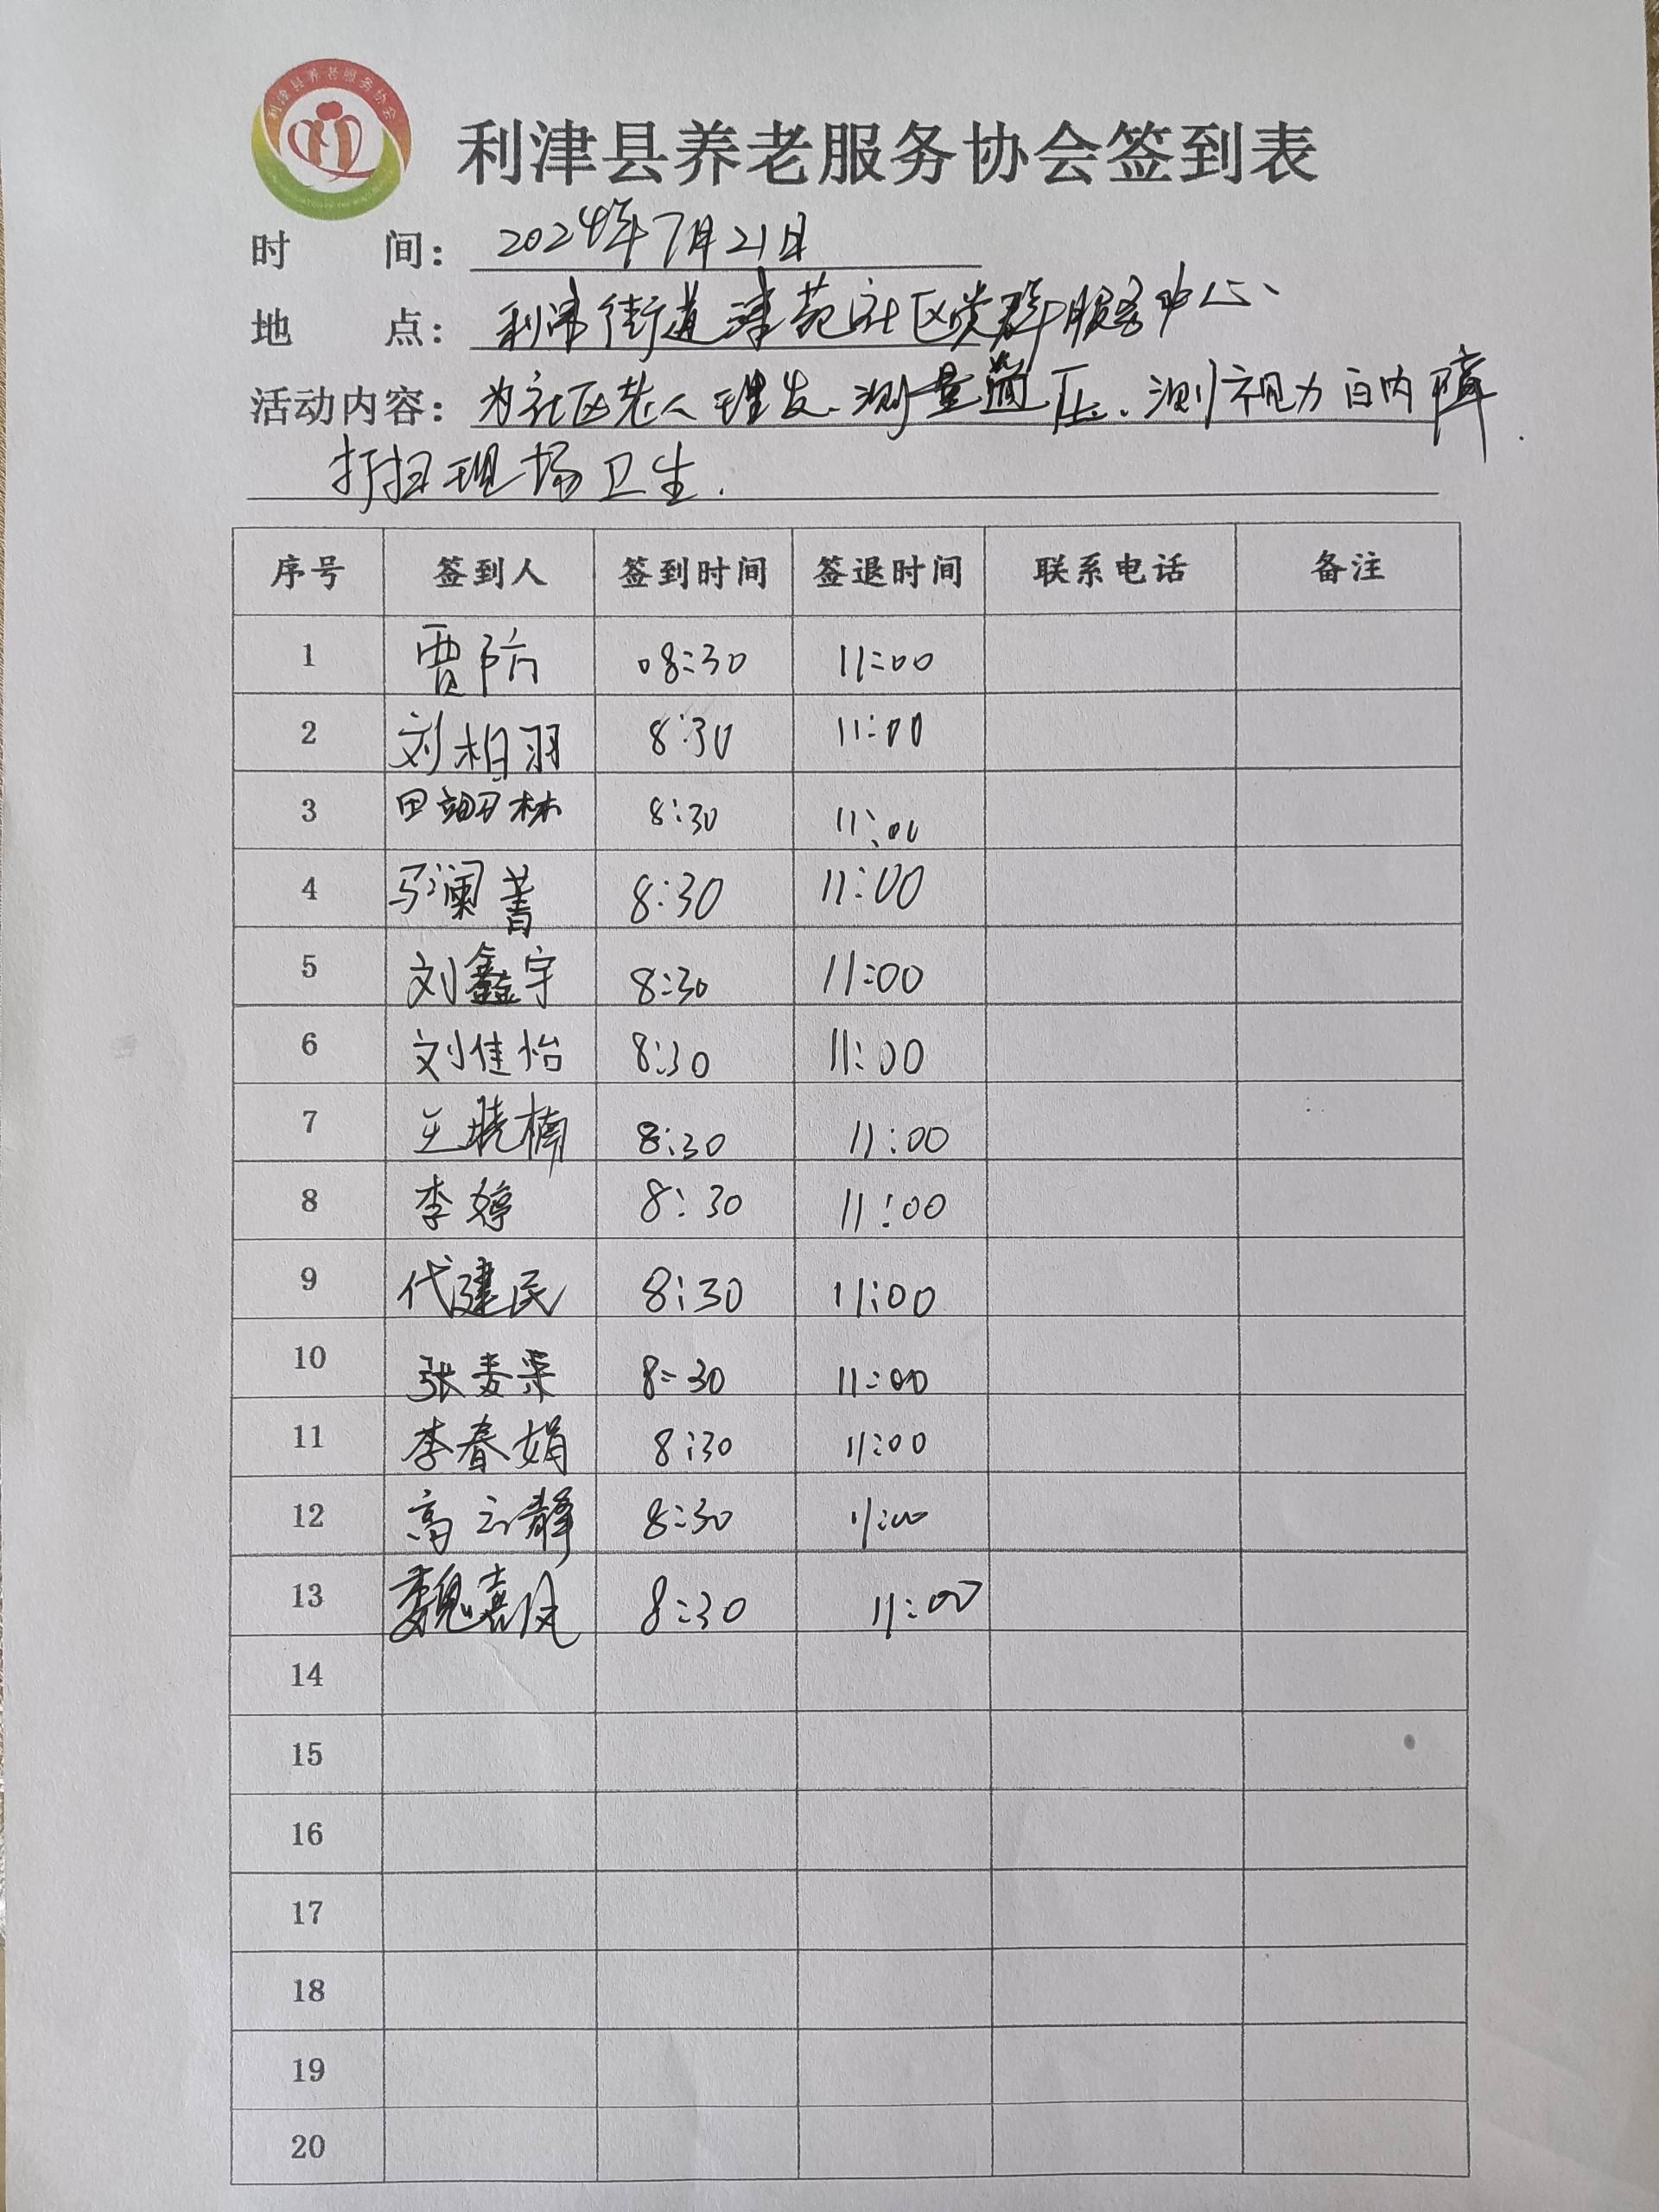 利津县养老服务协会
利津县养老服务协会签到表
时 间: 2024年7月21日
地 点: 利津街道津苑社区党群服务中心、
活动内容: 为社区老人理发、测量血压、测视力白内障.
打扫现场卫生.
序号 签到人 签到时间 签退时间 联系电话 备注
1 贾防 08:30 11:00
2 刘柏羽 8:30 11:00
3 田 林 8:30 11:00
4 马澜菁 8:30 11:00
5 刘鑫宇 8:30 11:00
6 刘佳怡 8:30 11:00
7 王晓楠 8:30 11:00
8 李婷 8:30 11:00
9 代建民 8:30 11:00
10 张 8:30 11:00
11 李春娟 8:30 11:00
12 高云静 8:30 11:00
13 魏嘉凤 8:30 11:00
14
15
16
17
18
19
20